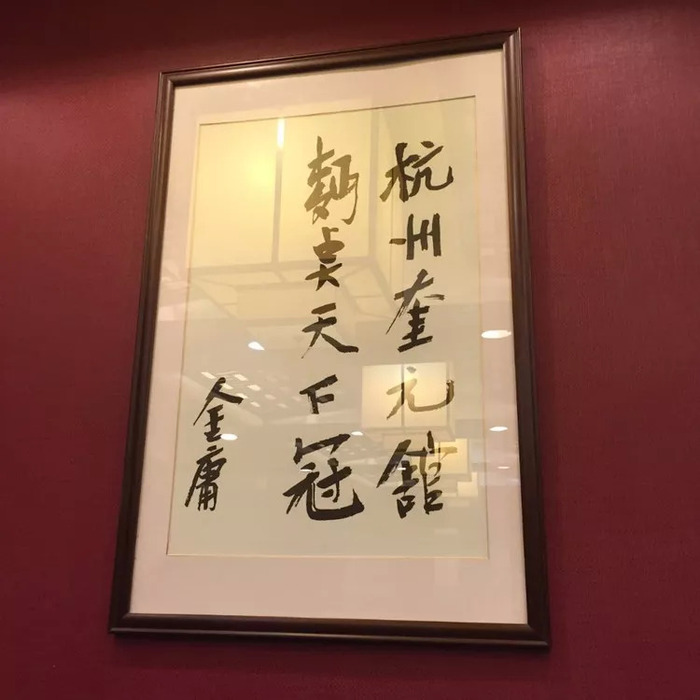 杭州奎元館
麵点天下冠
金庸